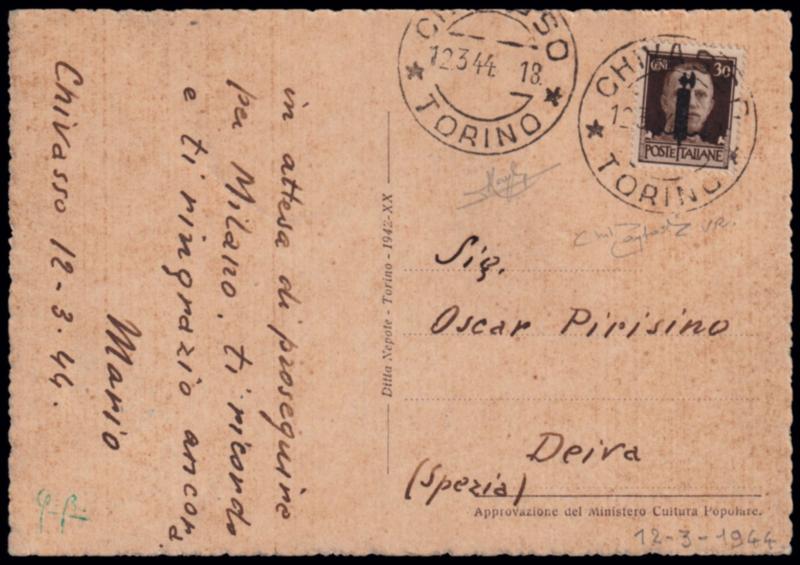 in attesa di proseguire
per Milano, ti ricordo
e ti ringrazio ancora
Mario
Chivasso 12-3-44.
Ditta Nepote - Torino - 1942-XX
CHIVASSO
12.3.44 18
TORINO
CHIVASSO
TORINO
CENT. 30
POSTE ITALIANE
VR.
Sig.
Oscar Pirisino
Deiva
(Spezia)
Approvazione del Ministero Cultura Popolare.
12-3-1944